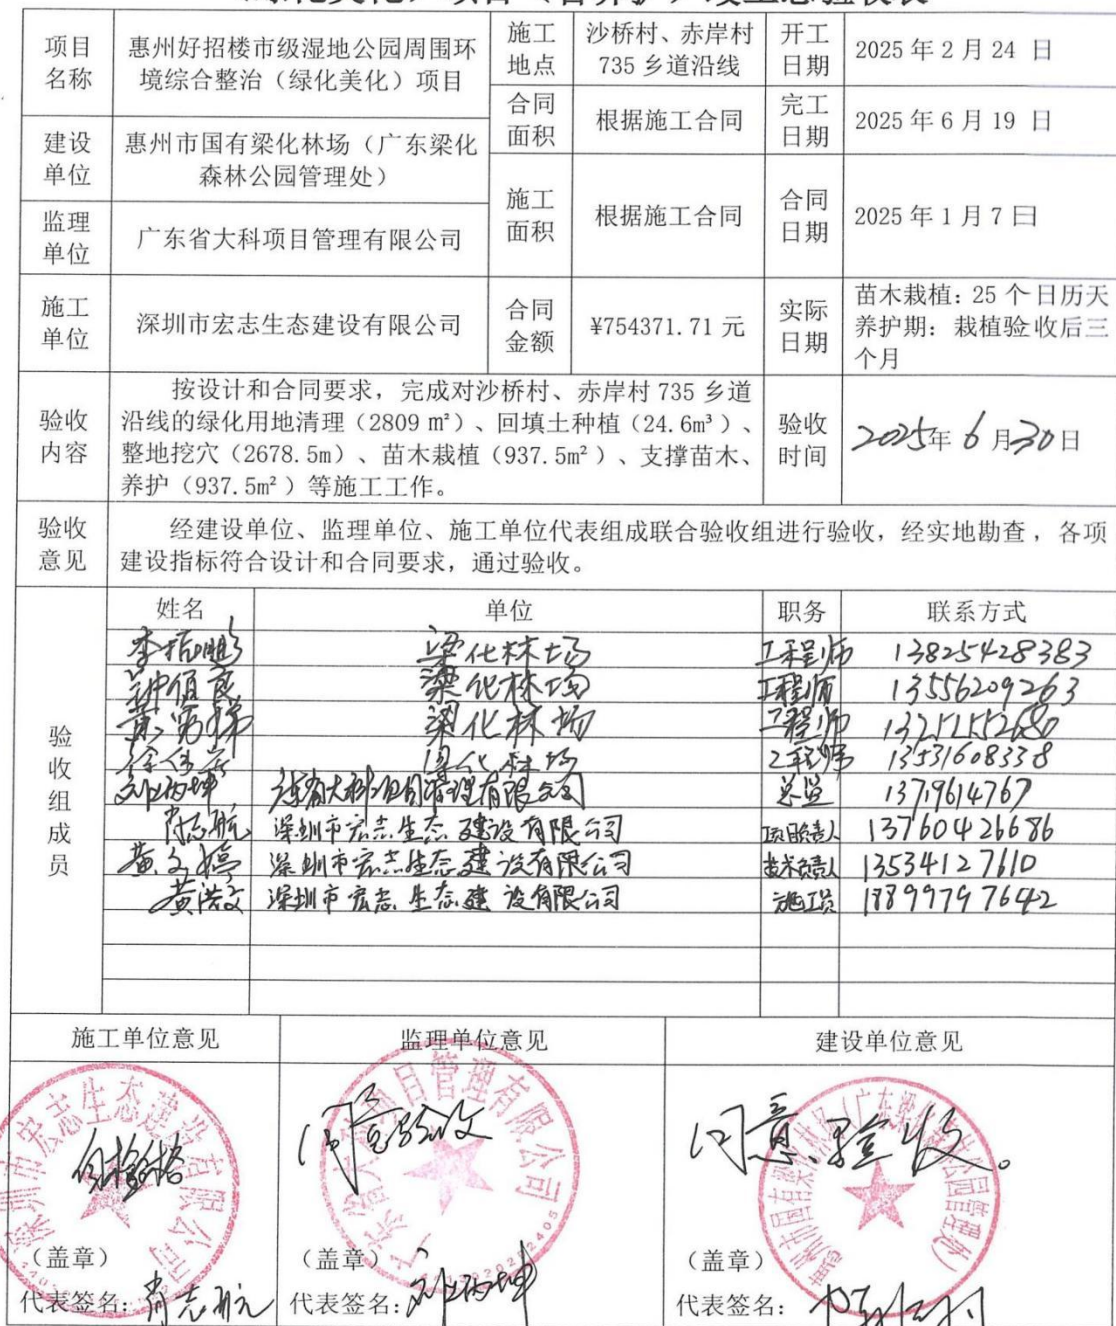 项目名称
惠州好招楼市级湿地公园周围环
境综合整治（绿化美化）项目
施工地点
沙桥村、赤岸村
735 乡道沿线
开工日期
2025 年 2 月 24 日
合同面积
根据施工合同
完工日期
2025 年 6 月 19 日
建设单位
惠州市国有梁化林场（广东梁化
森林公园管理处）
施工面积
根据施工合同
合同日期
2025 年 1 月 7 日
监理单位
广东省大科项目管理有限公司
施工单位
深圳市宏志生态建设有限公司
合同金额
¥754371.71 元
实际日期
苗木栽植：25 个日历天
养护期：栽植验收后三
个月
验收内容
按设计和合同要求，完成对沙桥村、赤岸村 735 乡道
沿线的绿化用地清理（2809 ㎡）、回填土种植（24.6m³）、
整地挖穴（2678.5m）、苗木栽植（937.5m²）、支撑苗木、
养护（937.5m²）等施工工作。
验收时间
2025年 6 月30日
验收意见
经建设单位、监理单位、施工单位代表组成联合验收组进行验收，经实地勘查，各项
建设指标符合设计和合同要求，通过验收。
验收组成员
姓名 单位 职务 联系方式
梁化林场 工程师 13825428383
梁化林场 工程师 13556209263
梁化林场 工程师
梁化林场 工程师 13531608338
刘炳坤 大科项目管理有限公司 总监 13719614767
肖志航 深圳市宏志生态建设有限公司 项目负责人 13760426686
黄文婷 深圳市宏志生态建设有限公司 技术负责人 13534127610
黄浩文 深圳市宏志生态建设有限公司 施工员 18899797642
施工单位意见 监理单位意见 建设单位意见
自检合格
同意验收
同意验收。
深圳市宏志生态建设有限公司
广东省大科项目管理有限公司
惠州市国有梁化林场（广东梁化森林公园管理处）
（盖章）
（盖章）
（盖章）
代表签名：肖志航
代表签名：刘炳坤
代表签名：